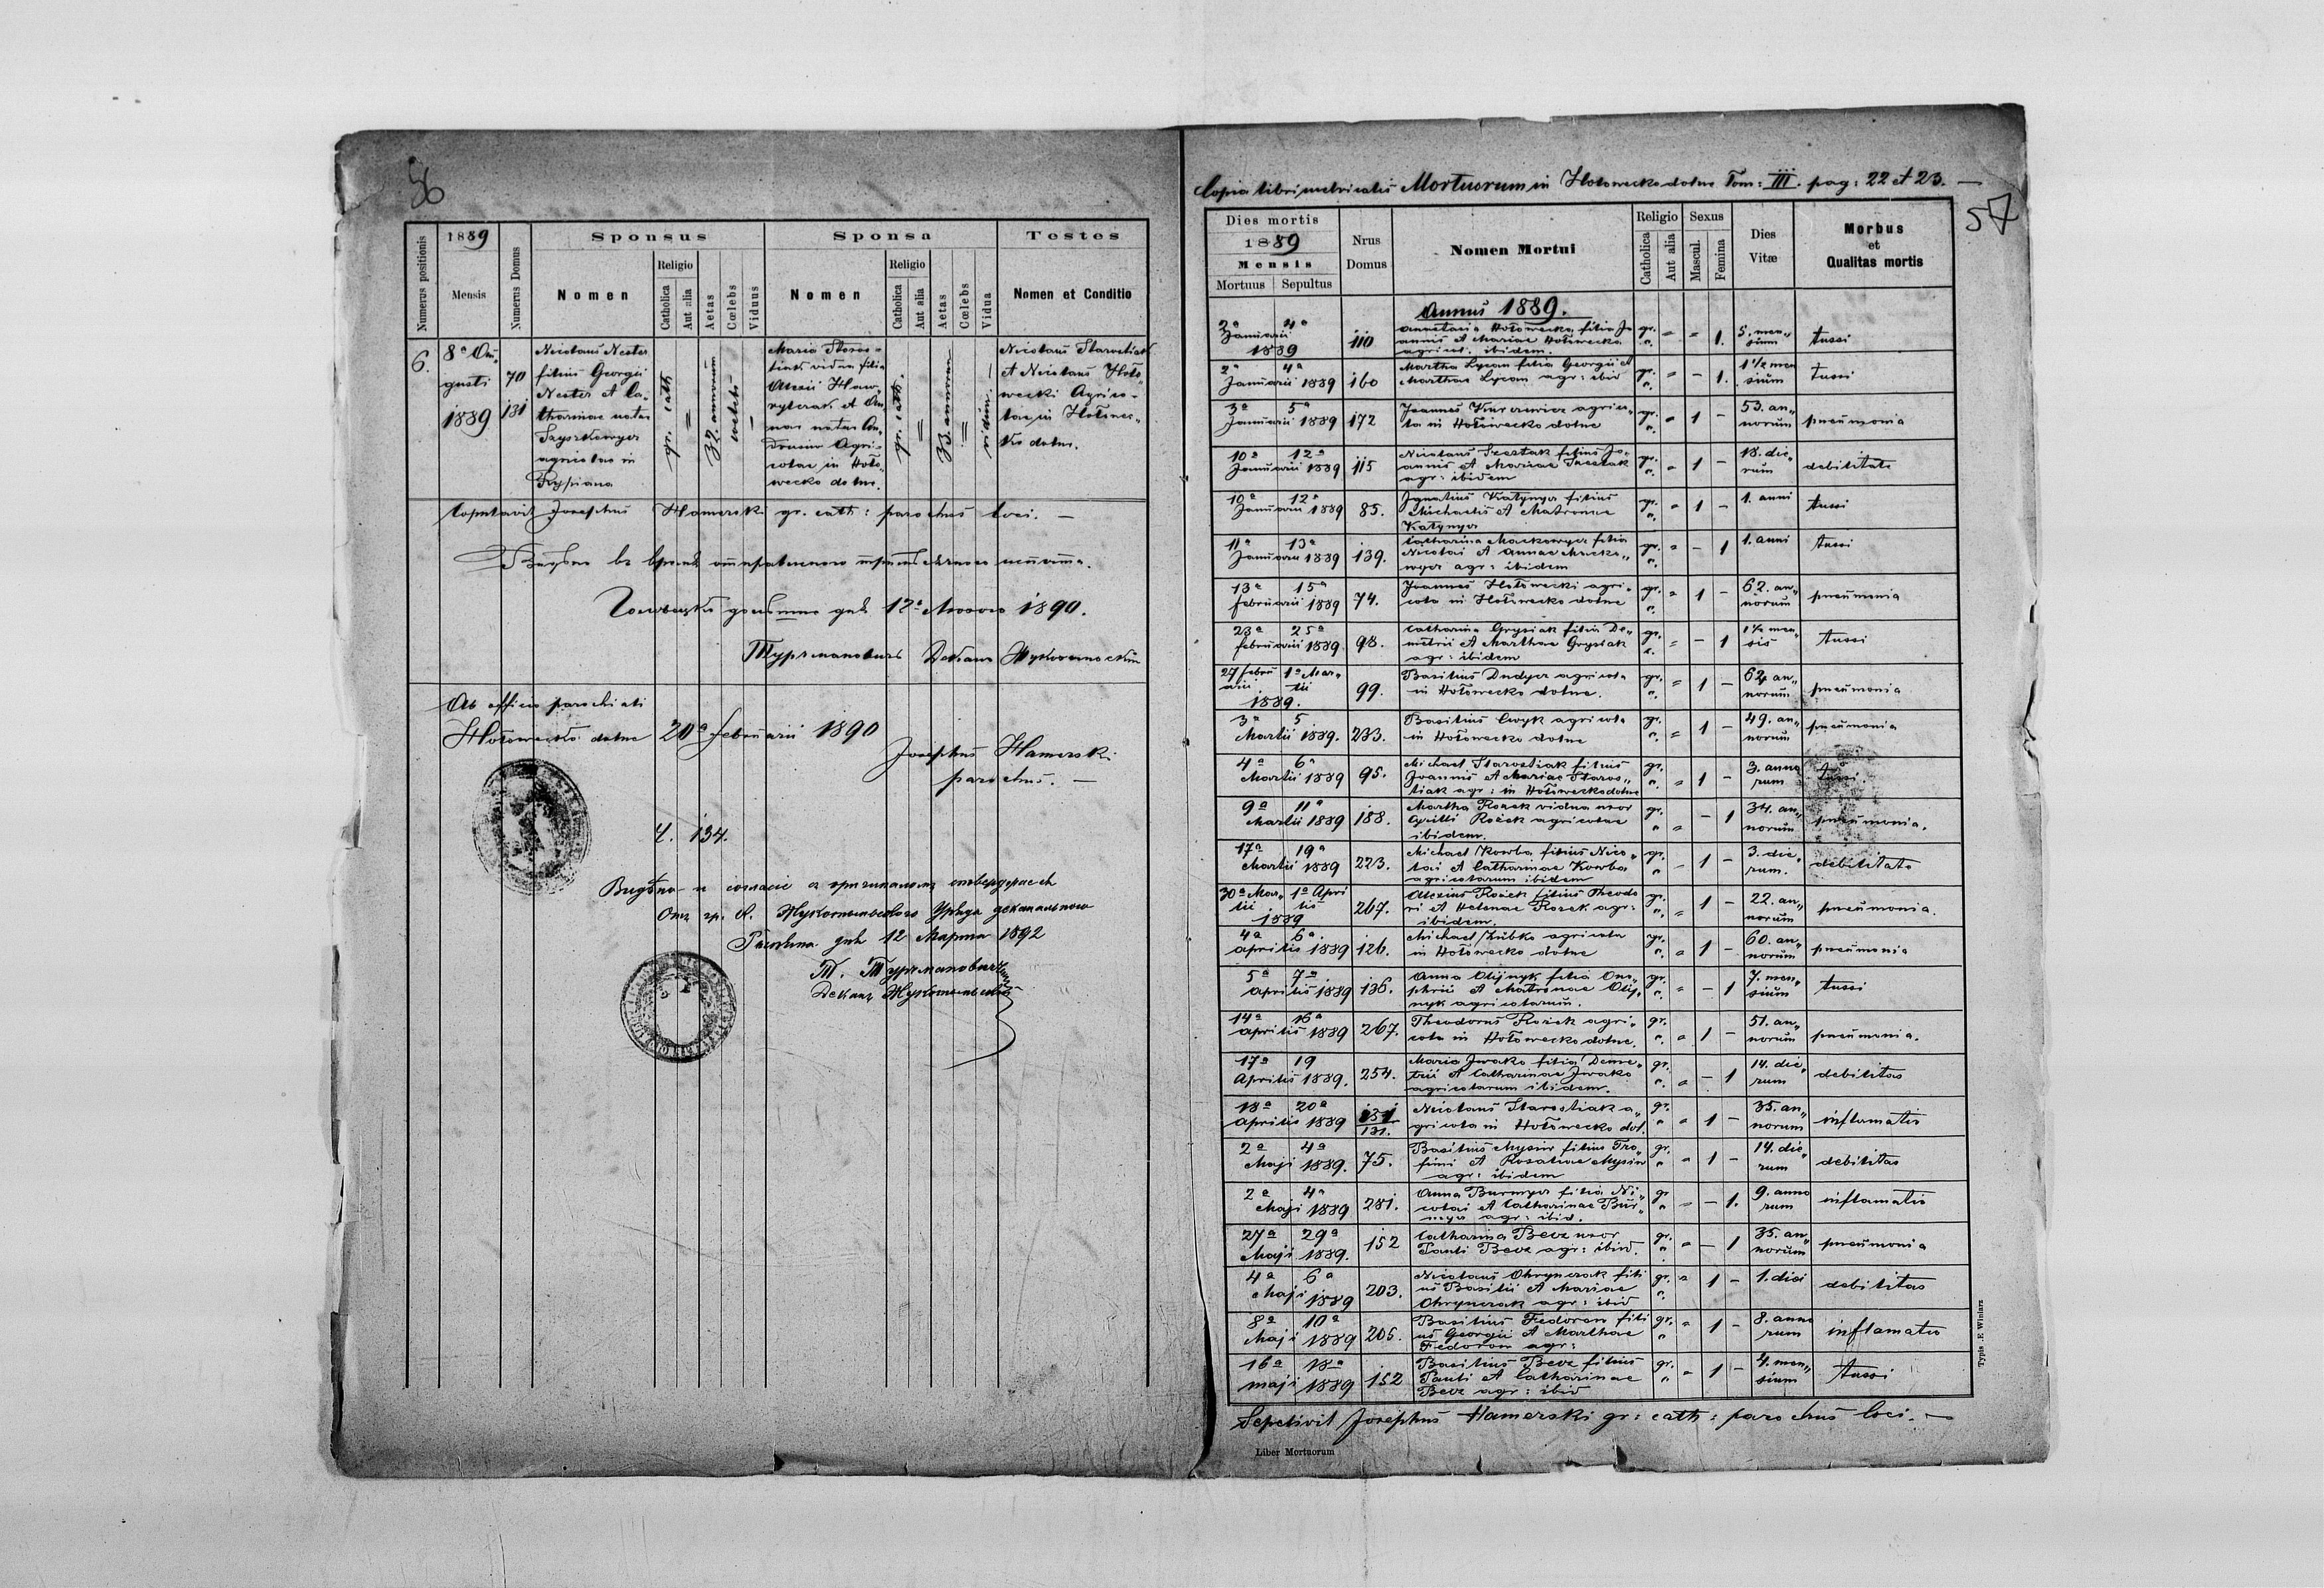 56
Numerus positionis
1889
Mensis
Numerus Domus
Sponsus
Nomen
Religio
Catholica
Aut alia
Aetas
Cœlebs
Viduus
Sponsa
Nomen
Religio
Catholica
Aut alia
Aetas
Cœlebs
Vidua
Testes
Nomen et Conditio
6.
8a Au„
gusti
1889
70
131
Nicolaus Nester
filius Georgii
Nester et Ca„
tharinae natae
agricolae in
Rypiana
gr. cath
=
32. annorum
coelebs
=
Maria Staros„
tiak vidua filia
Alexii Haw„
rylczak et An„
nae natae An„
Agri„
colae in Hoło„
wecko dolne.
gr. cath.
=
33. annorum
=
vidua.
Nicolaus Starostiak
et Nicolaus Hoło„
wecki Agrico„
lae in Hołowec„
ko dolne.
Copulavit Josephus Hamerski gr. cath: parochus loci. —
12a 1890.
Ab officio parochiali
Hołowecko dolne 20a februarii 1890
Josephus Hamerski
parochus. —
Ч. 134.
12 Марта 1892
Copia libri metricalis Mortuorum in Hołowecko dolne Tom: III. pag: 22 et 23. —
57
Dies mortis
1889
Mensis
Mortuus Sepultus
Nrus
Domus
Nomen Mortui
Religio
Catholica
Aut alia
Sexus
Mascul.
Femina
Dies
Vitæ
Morbus
et
Qualitas mortis
Annus 1889.
2a 4a
Januarii
1889
110
Anastasia Hołowecka filia Jo
annis et Mariae Hołowecka
agricol. ibidem.
gr. c. = = 1.
5. men„
sium
tussi
2a 4a
Januarii 1889
160
Martha Lycan filia Georgii et
Marthae Lycan agr: ibid
gr. c. = — 1.
1 1/2 men
sium
tussi
3a 5a
Januarii 1889
172
Joannes agrico„
la in Hołowecko dolne
gr. c. = 1 —
53. an„
norum
pneumonia
10a 12a
Januarii 1889
115
Nicolaus filius Jo„
annis et Mariae
agr: ibidem
gr. c. = 1 —
18. die„
rum
debilitate
10a 12a
Januarii 1889
85.
Ignatius Katynycz filius
Michaelis et Matronae
Katynycz
gr. c. = 1 —
1. anni
tussi
11a 13a
Januarii 1889
139.
Catharina Mackowycz filia
Nicolai et Annae Macko„
wycz agr: ibidem
gr. c. = — 1
1. anni
tussi
13a 15a
februarii 1889
74.
Joannes Hołowecki agri„
cola in Hołowecko dolne
gr. c. = 1 —
62. an„
norum
pneumonia
23a 25a
februarii 1889.
98.
Catharina Grysiak filia De„
metrii et Marthae Grysiak
agr: ibidem
gr. c. = — 1
1 1/2 men„
sis
tussi
27 febru 1a Mar„
arii. tii
1889.
99.
Basilius Dudycz agricola
in Hołowecko dolne.
gr. c. = 1 —
64 an„
norum
pneumonia
3a 5
Martii 1889.
233.
Basilius Cwyk agricola
in Hołowecko dolne
gr. c. = 1 —
49. an„
norum
pneumonia
4a 6a
Martii 1889
95.
Michael Starostiak filius
Joannis et Mariae Staros„
tiak agr: in Hołowecko dolne
gr. c. = 1 —
3. anno
rum
tussi.
9a 11a
Martii 1889
188.
Martha Rożek vidua uxor
Cyrilli Rożek agricolae
ibidem.
gr. " = — 1
34. an„
norum
pneumonia.
17a 19a
Martii 1889
223.
Michael Kowba filius Nico„
lai et Catharinae Kowba
agricolarum ibidem
gr. " — 1 —
3. die„
rum.
debilitate
30a Mar„ 1a Apri
tii lis
1889
267.
Alexius Rożek filius Theodo
ri et Helenae Rożek agr:
ibidem.
gr. " = 1 —
22. an„
norum
pneumonia.
4a 6a.
Aprilis 1889
126.
Michael Zubko agricola
in Hołowecko dolne
gr. c. = 1 —
60. an„
norum
pneumonia
5a 7a
Aprilis 1889
136.
Anna Olijnyk filia Onu„
phrii et Matronae Olij„
nyk agricolarum.
gr. c. = — 1
7. men„
sium
tussi
14a 16a
Aprilis 1889
267.
Theodorus Rożek agri„
cola in Hołowecko dolne.
gr. c. = 1 —
51. an„
norum
pneumonia.
17a 19
Aprilis 1889.
254.
Maria Jwasko filia Deme„
trii et Catharinae Jwasko
agricolarum ibidem.
gr. " = — 1
14. die„
rum
debilitas
18a 20a
Aprilis 1889
131.
Nicolaus Starostiak a„
gricola in Hołowecko dol.
gr. " = 1 —
35. an„
norum
inflamatio
2a 4a
Maji 1889.
75.
Basilius Mysiw filius Tro„
fimi et Rosaliae Mysiw
agr: ibidem
gr. " = 1 —
14. die„
rum
debilitas
2a 4a
Maji 1889
281.
Anna Burmycz filia Ni„
colai et Catharinae Bur„
mycz agr: ibid.
gr " = — 1.
9. anno
rum
inflamatio
27a 29a
Maji 1889.
152
Catharina Bevz uxor
Pauli Bevz agr: ibid.
gr. " = — 1
35. an„
norum
pneumonia
4a 6a
Maji 1889
203.
Nicolaus Ohrynczak fili
us Basilii et Mariae
Ohrynczak agr: ibid
gr. c. = 1 —
1. diei
debilitas
8a 10a
Maji 1889
205.
Basilius Fedoron fili
us Georgii et Marthae
Fedoron agr:
gr. " = 1 —
8. anno
rum
inflamatio
16a 18a
maji 1889
152
Basilius Bevz filius
Pauli et Catharinae
Bevz agr: ibid
gr. " = 1 —
4. men„
sium
tussi
Sepelivit Josephus Hamerski gr: cath: parochus loci. —
Liber Mortuorum
Typis .E Winiarz